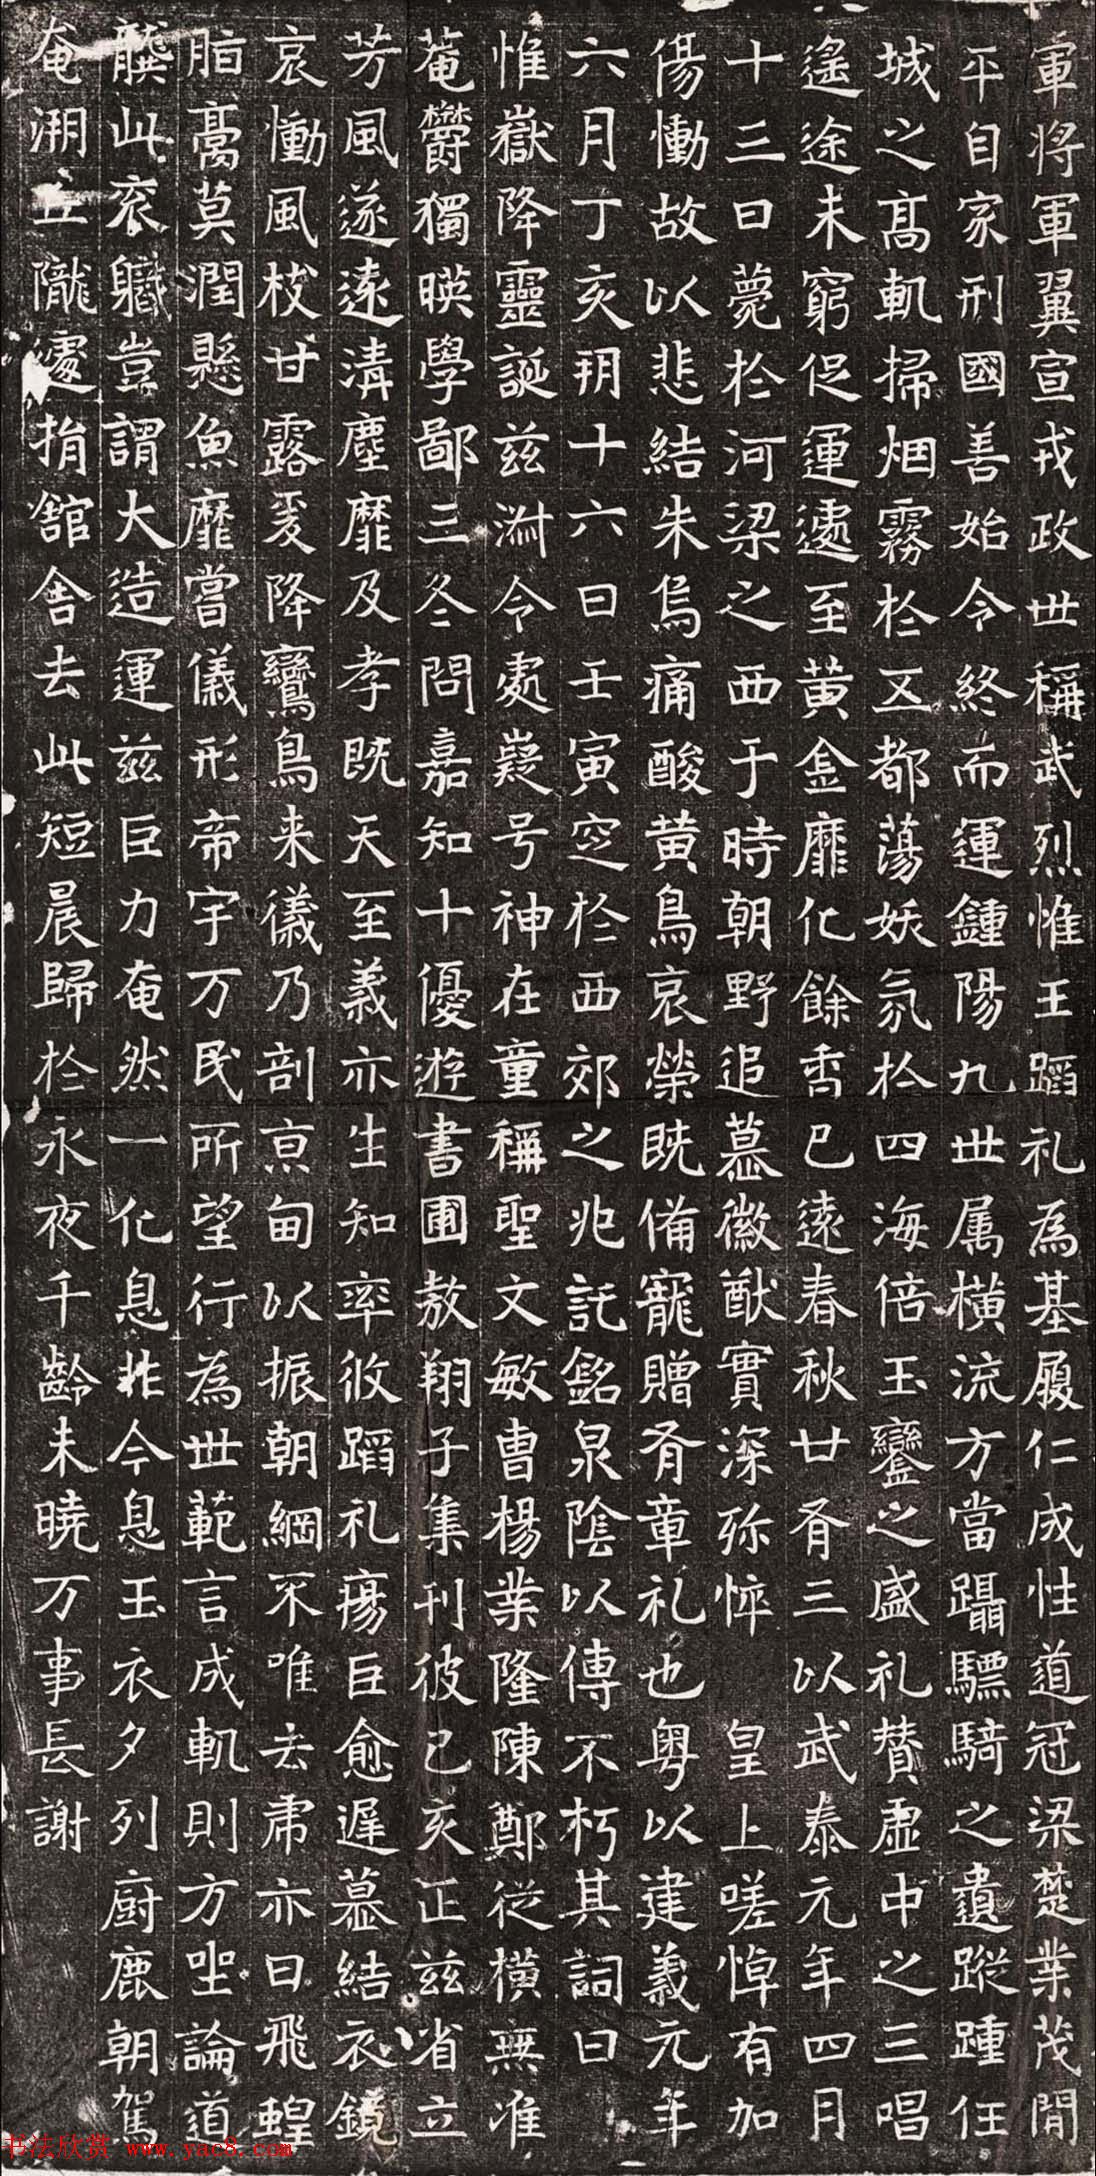 軍將軍翼宣戎政世稱武烈惟王蹈礼為基履仁成性道冠梁楚業茂閒
平自家刑國善始令終而運鍾陽九世属横流方當躡驃騎之遺蹤踵任
城之髙軌掃烟霧於五都蕩妖氛於四海倍玉鑾之盛礼賛虚中之三唱
遥途未窮促運遽至黄金靡化餘香已遠春秋廿有三以武泰元年四月
十三日薨於河梁之西于時朝野追慕徽猷實深殄悴皇上嗟悼有加
傷慟故以悲結朱烏痛酸黄鳥哀榮既備寵贈有章礼也粤以建義元年
六月丁亥朔十六日壬寅窆於西郊之兆託銘泉陰以傳不朽其詞曰
惟嶽降靈誕兹淵令處嶷号神在童稱聖文敏曹楊業隆陳鄭從横無准
菴欝獨暎學鄙三冬問嘉知十優遊書圃敖翔子集刊彼己亥正兹省立
芳風遂遠清塵靡及孝既天至義亦生知率攸蹈礼瘍巨愈遲慕結衣鏡
哀慟風枝甘露夌降鸞鳥来儀乃剖亰甸以振朝綱不唯去肅亦曰飛蝗
脂髙莫潤懸魚靡嘗儀形帝宇万民所望行為世範言成軌則方坐論道
龔此衮軄豈謂大造運兹巨力奄然一化息非今息玉衣夕列廚鹿朝駕
奄淵丘隴遽捐舘舍去此短晨歸於永夜千齡未曉万事長謝
书法欣赏 www.yac8.com